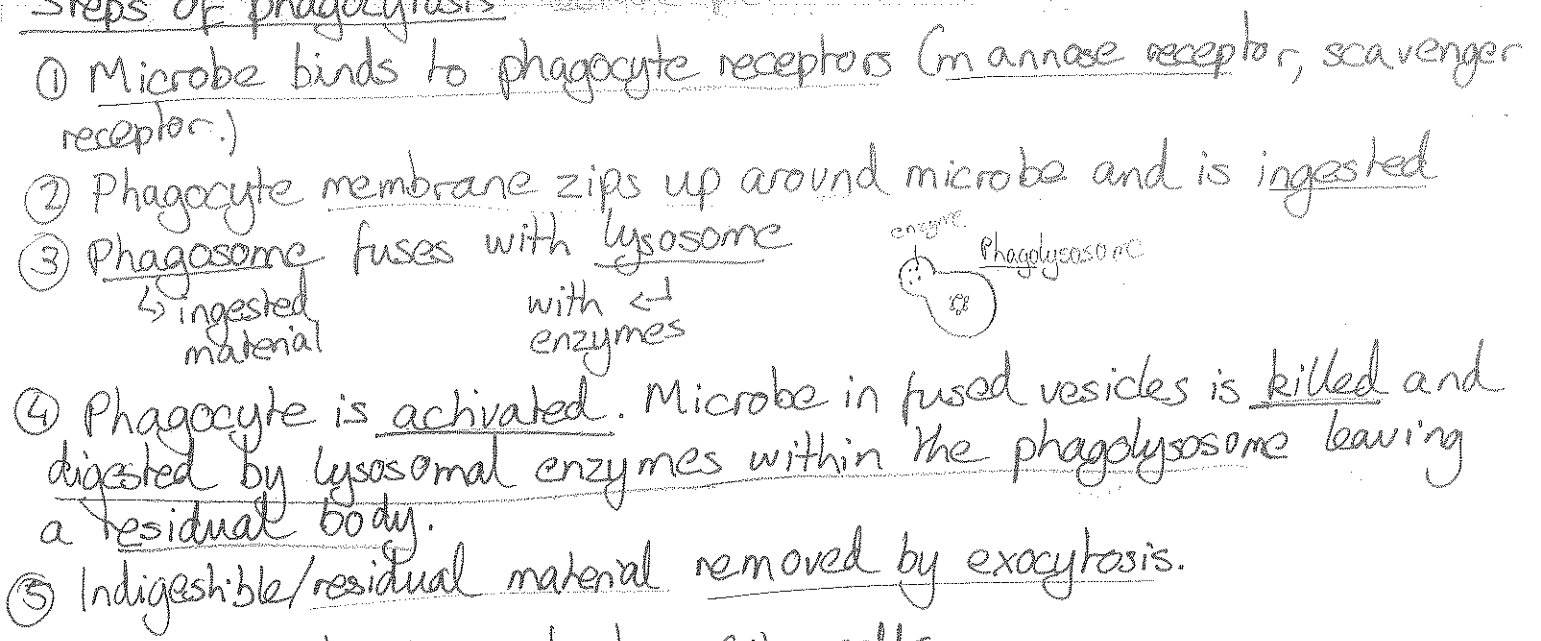 Steps of phagocytosis
① Microbe binds to phagocyte receptors (mannose receptor, scavenger
receptor.)
② Phagocyte membrane zips up around microbe and is ingested
③ Phagosome fuses with lysosome
enzyme
Phagolysosome
↳ ingested
material
with ↲
enzymes
④ Phagocyte is activated. Microbe in fused vesicles is killed and
digested by lysosomal enzymes within the phagolysosome leaving
a residual body.
⑤ Indigestible/residual material removed by exocytosis.